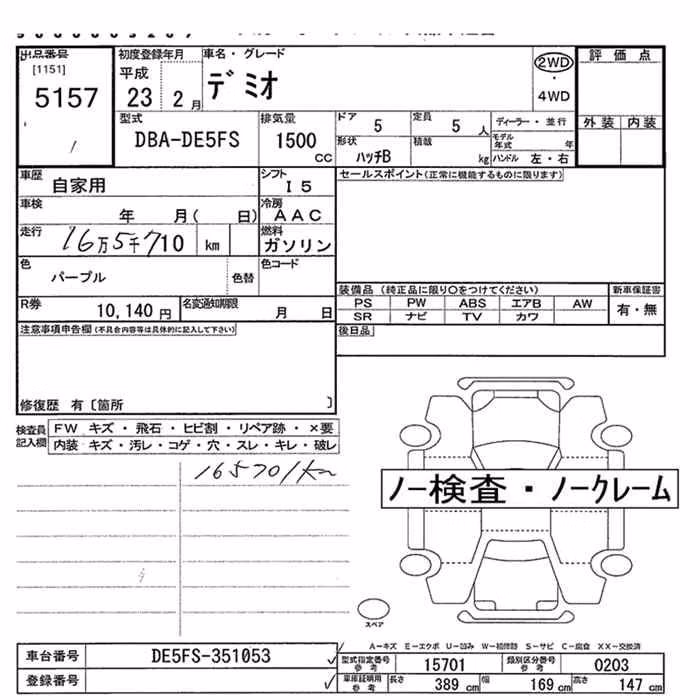 出品番号 初度登録年月 車名・グレード 評価点
[1151] 平成 デミオ 2WD
5157 23 2月 ・
4WD
型式 排気量 ドア 5 定員 5人 ディーラー・並行 外装 内装
DBA-DE5FS 1500 cc 形状 ハッチB 積載 kg モデル年式 年
ハンドル 左・右
車歴 自家用 シフト I5 セールスポイント(正常に機能するものに限ります)
車検 年 月( 日) 冷房 AAC
走行 16万5千710 km 燃料 ガソリン
色 パープル 色替 色コード
装備品 (純正品に限り○をつけてください) 新車保証書
R券 10,140円 名変通知期限 月 日 PS PW ABS エアB AW 有・無
SR ナビ TV カワ
注意事項申告欄(不具合内容等は具体的に記入して下さい) 後日品
修復歴 有〔箇所 〕
検査員記入欄 FW キズ・飛石・ヒビ割・リペア跡・×要
内装 キズ・汚レ・コゲ・穴・スレ・キレ・破レ
165701km
ノー検査・ノークレーム
スペア
A-キズ E-エクボ U-凹み W-補修跡 S-サビ C-腐食 XX-交換済
車台番号 DE5FS-351053 型式指定番号参考 15701 類別区分番号参考 0203
登録番号 車庫証明用参考 長さ 389cm 幅 169cm 高さ 147cm